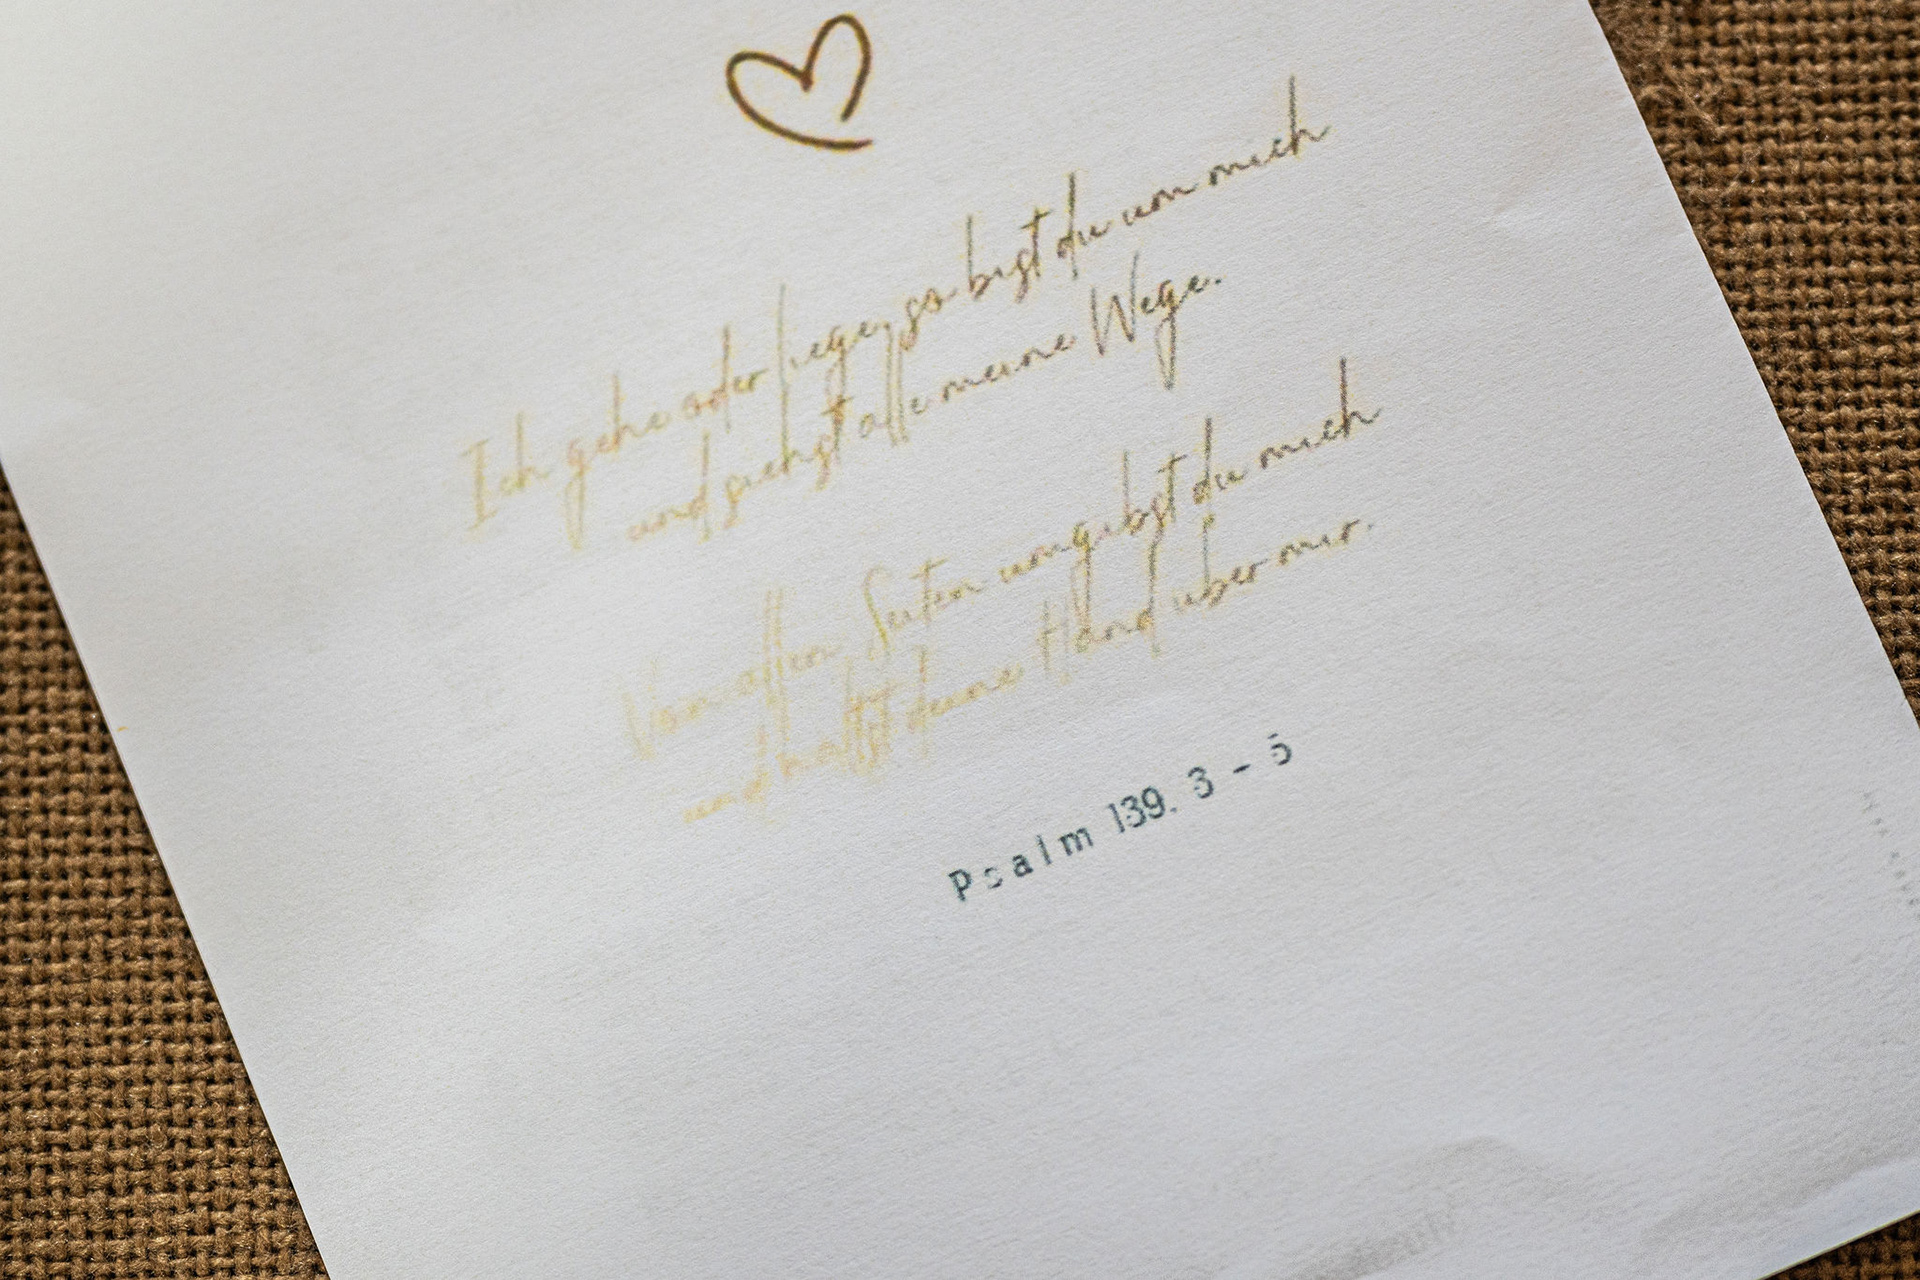 Ich gehe oder liege, so bist du um mich
und siehst alle meine Wege.
Von allen Seiten umgibst du mich
und hältst deine Hand über mir.
Psalm 139. 3 - 5